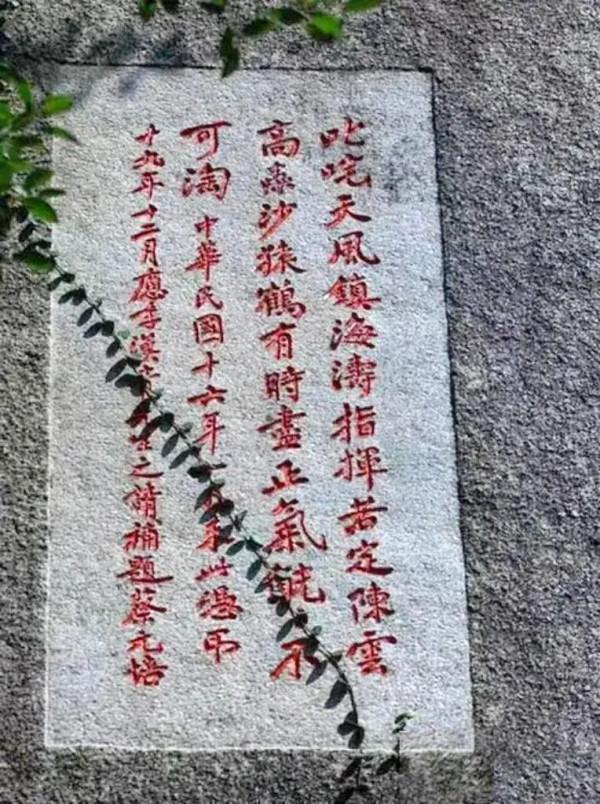 叱咤天風鎮海濤指揮若定陳雲
高蟲沙猿鶴有時盡正氣觥不
可淘中華民國十六年一月來此憑弔
廿九年十二月應李漢之請補題蔡元培